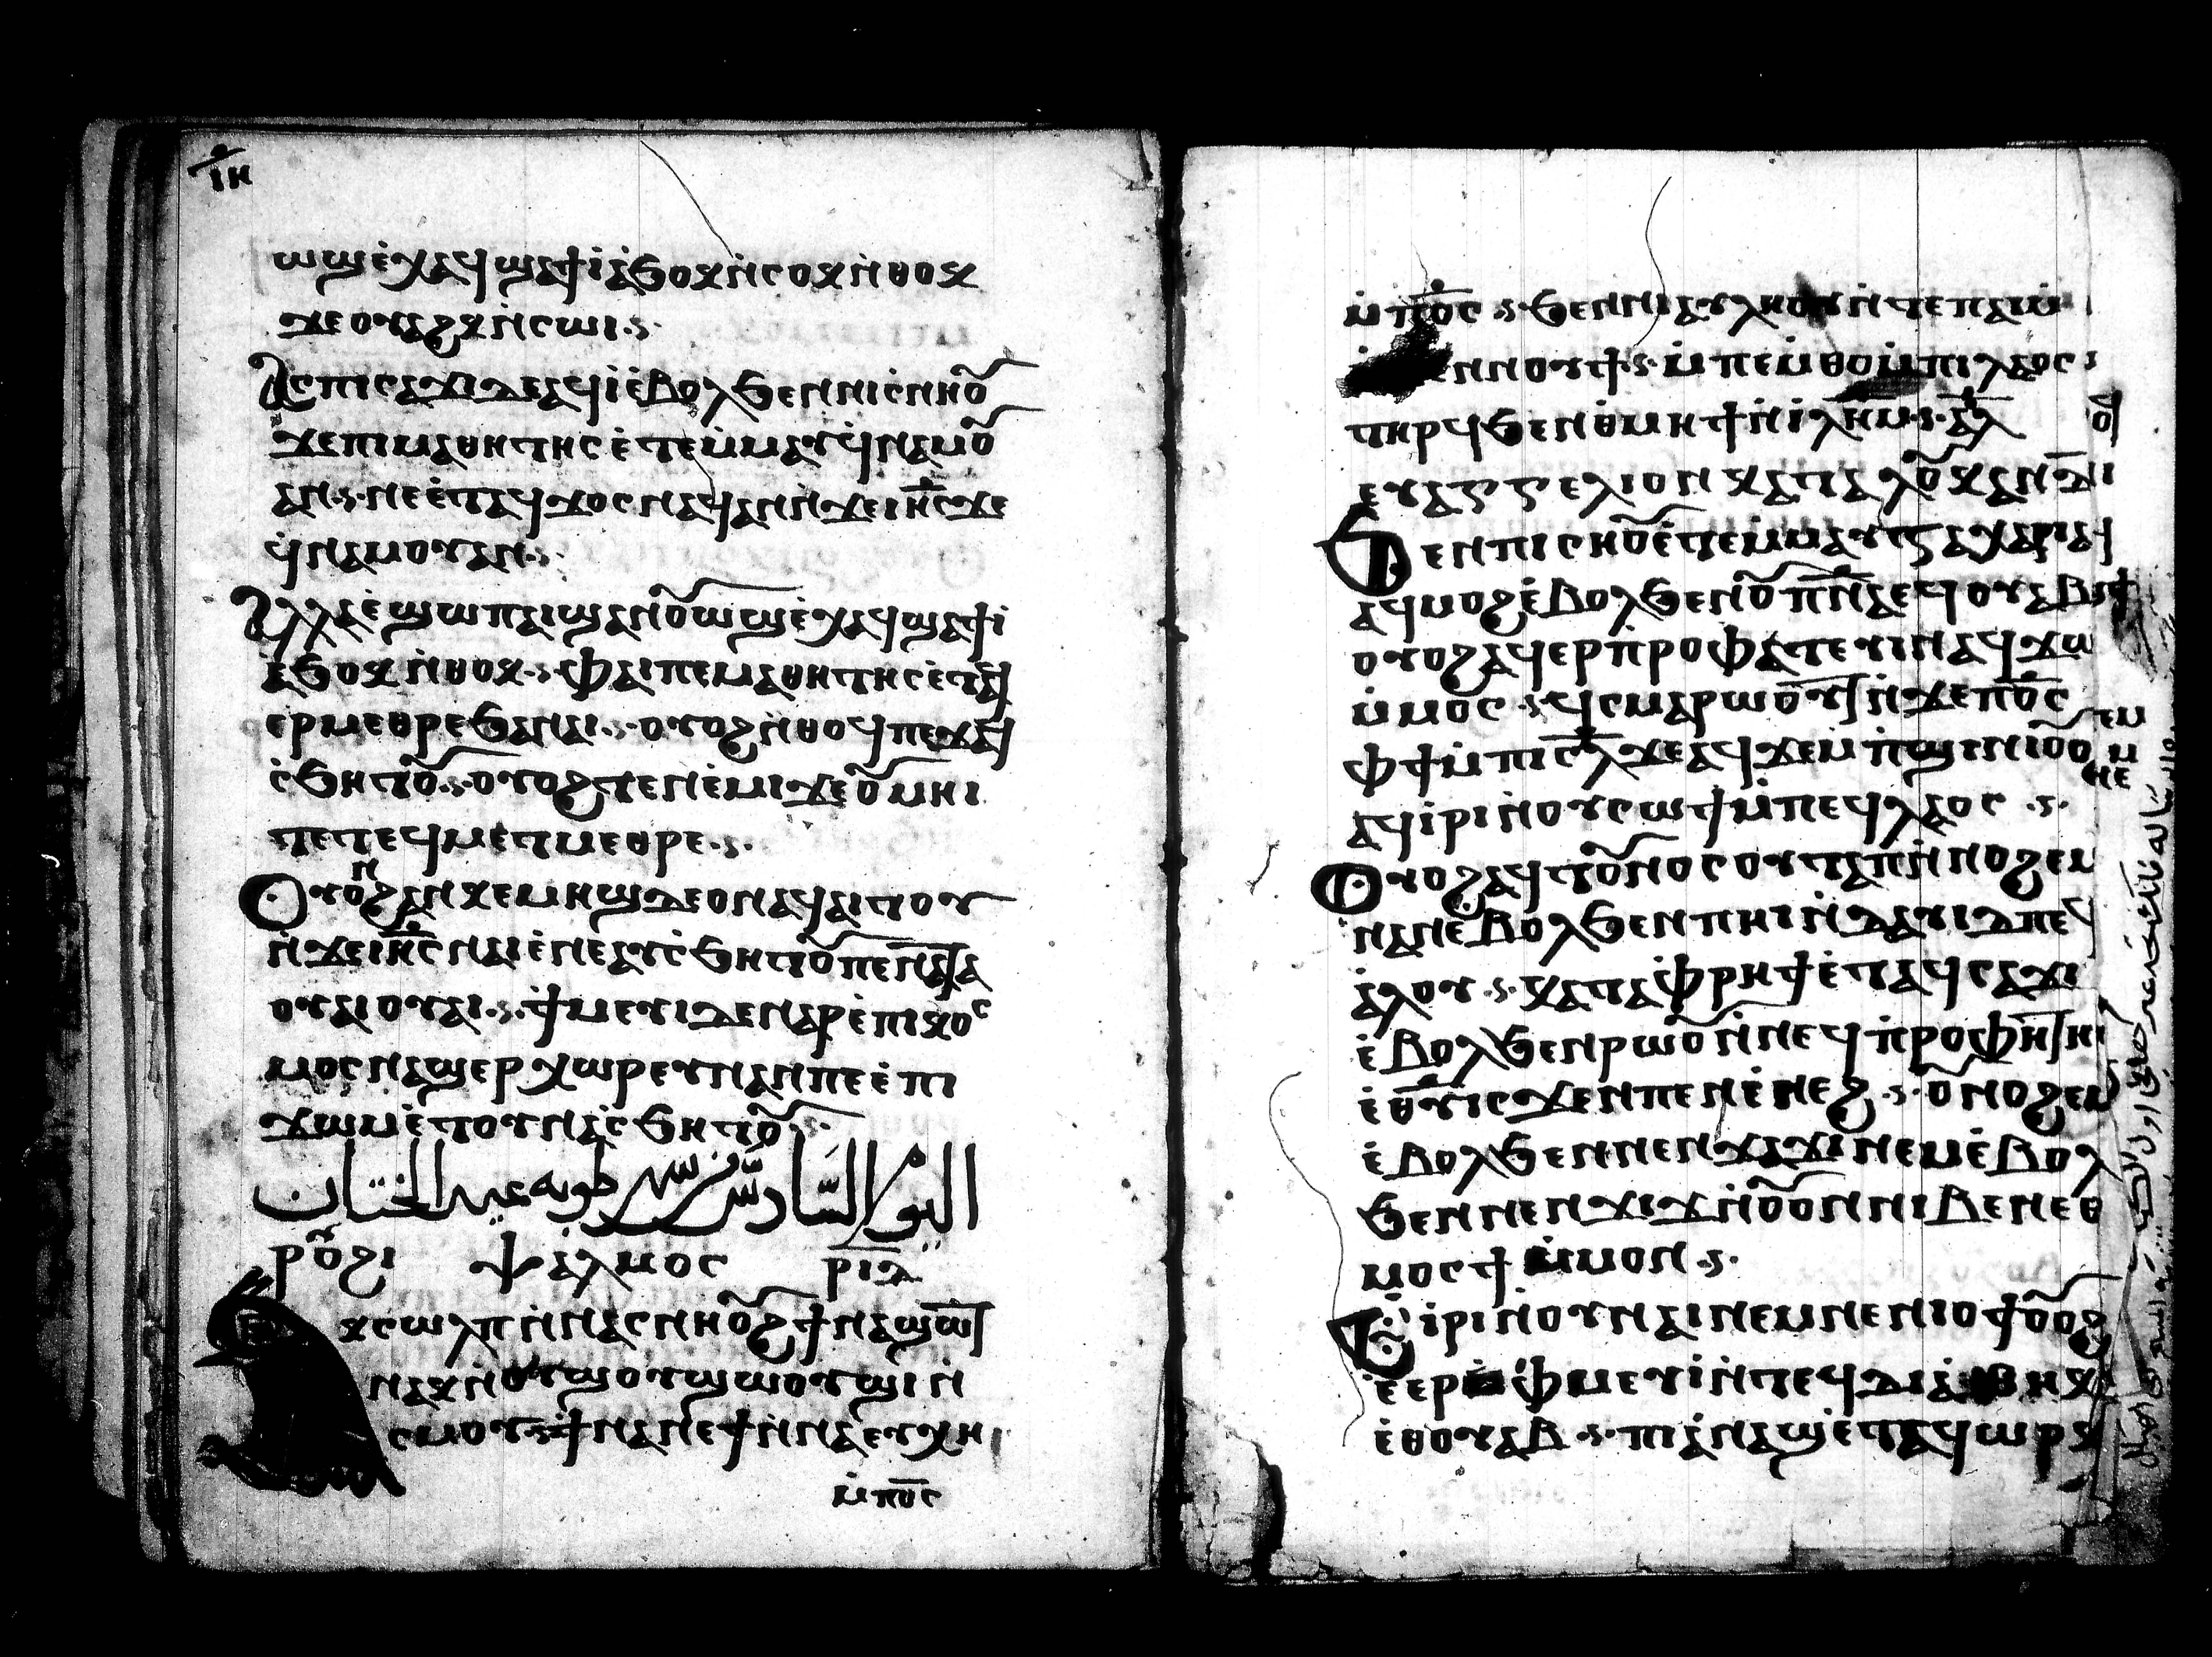 ⲓⲏ
ⲱϣⲉ̀ⲭⲁϥϣⲁϯⲓ̀ⲁ̀ϧⲟⲕⲛ̀ⲥⲟⲕⲛ̀ⲑⲟⲕ
ϫⲉⲟⲩⲁϩⲕⲛ̀ⲥⲱⲓ
ⲁⲥⲡⲓⲥⲁϫⲓⲇⲉⲁϥⲓ̀ⲉ̀ⲃⲟⲗϧⲉⲛⲛⲓⲥ̀ⲛⲏⲟ̅
ϫⲉⲡⲓⲙⲁⲑⲏⲧⲏⲥⲉ̀ⲧⲉⲙ̀ⲙⲁⲩϥ̀ⲛⲁⲙⲟ̅
ⲁⲛ ⲛⲉⲉ̀ⲧⲁϥϫⲟⲥⲛⲁϥⲁⲛⲛ̀ϫⲉⲓⲏ̅ⲥϫⲉ
ϥ̀ⲛⲁⲙⲟⲩⲁⲛ
ⲁⲗⲗⲁⲉ̀ϣⲱⲡⲁⲓϣⲁⲛⲟ̅ⲱϣⲉ̀ⲭⲁϥϣⲁϯⲓ̀
ⲁ̀ϧⲟⲕⲛ̀ⲑⲟⲕ ⲫⲁⲓⲡⲉⲙⲁⲑⲏⲧⲏⲥⲉ̀ⲧⲁϥ
ⲉⲣⲙⲉⲑⲣⲉϧⲁⲛⲁⲓ ⲟⲩⲟϩⲛ̀ⲑⲟϥⲡⲉⲧⲁϥ
ⲥ̀ϧⲏⲧⲟ̅ ⲟⲩⲟϩⲧⲉⲛⲉ̀ⲙⲓϫⲉⲟ̅ⲙⲏⲓ
ⲧⲉⲧⲉϥⲙⲉⲧⲙⲉⲑⲣⲉ
ⲟⲩⲟⲛϩⲁⲛⲕⲉⲙⲏϣⲇⲉⲟⲛⲁϥⲁⲓⲧⲟⲩ
ⲛ̀ϫⲉⲓⲏ̅ⲥⲛⲁⲓⲉ̀ⲛⲉⲁⲩⲥ̀ϧⲏⲧⲟ̅ⲡⲉⲛⲁϥⲁ
ⲟⲩⲁⲓⲟⲩⲁⲓ ϯⲙⲉⲩⲓϫⲉⲛⲁⲣⲉ̀ⲡⲓⲕⲟⲥ
ⲙⲟⲥⲛⲁϣⲉⲣⲭⲱⲣⲉⲩⲓⲛⲁⲛⲡⲉⲉ̀ⲡⲓ
ϫⲱⲙⲉ̀ⲧⲟⲩⲛⲁⲥ̀ϧⲏⲧⲟ̅
اليوم السادس من شهر طوبه عيد الختان
ⲣⲟ̅ϩⲓ ⲯⲁⲗⲙⲟⲥ ⲣⲓⲇ
ⲕⲥⲱⲗⲡⲛ̀ⲛⲁⲥⲛⲏⲟ̅ϩϯⲛⲁϣⲱⲧ
ⲛⲁⲕⲛ̀ⲟⲩϣⲟⲩϣⲱⲟⲩϣⲓⲛ̀
ⲥⲙⲟⲩ ϯⲛⲁⲛⲉϯⲛ̀ⲛⲁⲉⲩⲭⲏ
ⲙ̀ⲡⲟ̅ⲥ
ⲙ̀ⲡⲟ̅ⲥ ϧⲉⲛⲛⲓⲁⲩⲗⲏⲟⲩⲛ̀ⲧⲉⲡⲁⲓⲙ
ⲉⲛⲛⲟⲩϯ ⲙ̀ⲡⲉⲙ̀ⲑⲟⲙ̀ⲡⲓⲗⲁⲟⲥ
ⲧⲏⲣϥϧⲉⲛⲑ̀ⲙⲏϯⲛ̀ⲓ̀ⲗⲏ̅ⲙ ⲁ̅ⲗ
ⲉⲩⲁⲅⲅⲉⲗⲓⲟⲛ ⲕⲁⲧⲁ ⲗⲟ̅ⲕⲁⲛ
ϧⲉⲛⲡⲓⲥⲏⲟ̅ⲉ̀ⲧⲉⲙ̀ⲙⲁⲩⲍⲁⲭⲁⲣⲓⲁⲥ
ⲁϥⲙⲟϩⲉ̀ⲃⲟⲗϧⲉⲛⲟ̅ⲡ̅ⲛ̅ⲁⲉϥⲟⲩⲁⲃ
ⲟⲩⲟϩⲁϥⲉⲣⲡ̀ⲣⲟⲫⲁⲧⲉⲩⲓⲛⲁϥϫⲱ
ⲙ̀ⲙⲟⲥ ϥ̀ⲥⲙⲁⲣⲱⲟⲩⲧⲛ̀ϫⲉⲡⲟ̅ⲥ
ⲫϯⲙ̀ⲡⲓⲥ̅ⲗϫⲉⲁϥϫⲉⲙⲡ̀ϣⲓⲛⲓⲟ̅ⲟ
ⲁϥⲓ̀ⲣⲓⲛ̀ⲟⲩⲥⲱϯⲙ̀ⲡⲉϥⲗⲁⲟⲥ
ⲟⲩⲟϩⲁϥⲧⲟ̅ⲛⲟⲥⲟⲩⲧⲁⲡⲛ̀ⲛⲟϩⲉⲙ
ⲛⲁⲛⲉ̀ⲃⲟⲗϧⲉⲛⲡⲏⲓⲛ̀ⲇⲁⲩⲓⲇⲡⲉϥ
ⲁ̀ⲗⲟⲩ ⲕⲁⲧⲁⲫ̀ⲣⲏϯⲉ̀ⲧⲁϥⲥⲁϫⲓ
ⲉ̀ⲃⲟⲗϧⲉⲛⲣⲱⲟ̅ⲛ̀ⲛⲉϥⲡ̀ⲣⲟⲫⲏⲧⲏ
ⲉ̀ⲑ̅ⲩⲓⲥϫⲉⲛⲡⲉⲛⲉ̀ⲛⲉϩ ⲟ̅ⲛⲟϩⲉⲙ
ⲉ̀ⲃⲟⲗϧⲉⲛⲛⲉⲛϫⲁϫⲓⲛⲉⲙⲉ̀ⲃⲟⲗ
ϧⲉⲛⲛⲉⲛϫⲓϫⲛ̀ⲟ̅ⲟⲛⲛⲓⲃⲉⲛⲉⲑ
ⲙⲟⲥϯ ⲙ̀ⲙⲟⲛ
ⲉ̀ⲓⲣⲓⲛ̀ⲟⲩⲛⲁⲓⲛⲉⲙⲛⲉⲛⲓⲟϯⲟ̅ⲟϩ
ⲉ̀ⲉⲣⲫ̀ⲙⲉⲩⲓ̀ⲛ̀ⲧⲉϥⲇⲓⲁⲑⲏⲕ
ⲉ̀ⲑⲟⲩⲁⲃ ⲡⲓⲁ̀ⲛⲁϣⲉ̀ⲧⲁϥⲱⲣⲕ